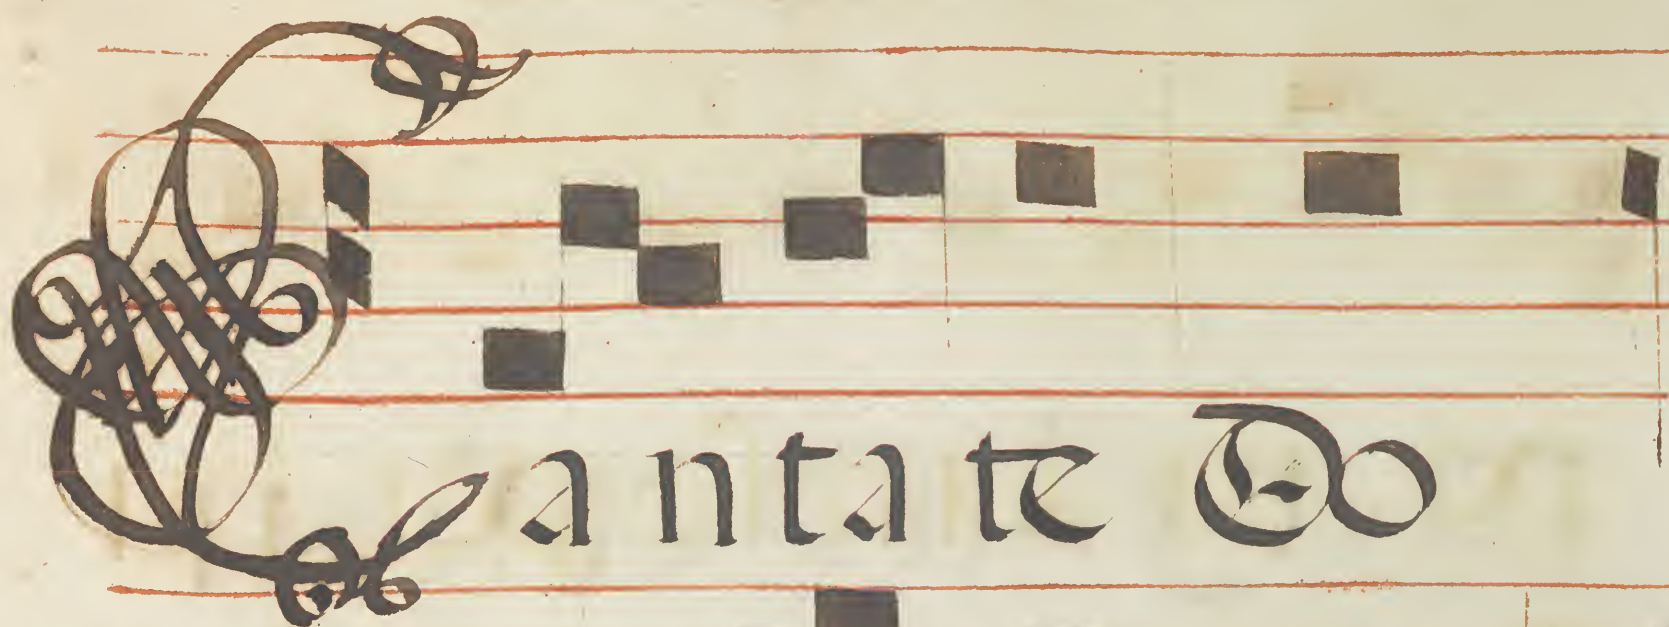 Cantate Do